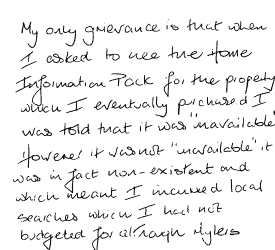 My only grievance is that when
I asked to see the Home
Information Pack for the property
which I eventually purchased I
was told that it was "unavailable"
However it was not "unavailable" it
was in fact non-existent and
which meant I incurred local
searches which I had not
budgeted for although Mylers